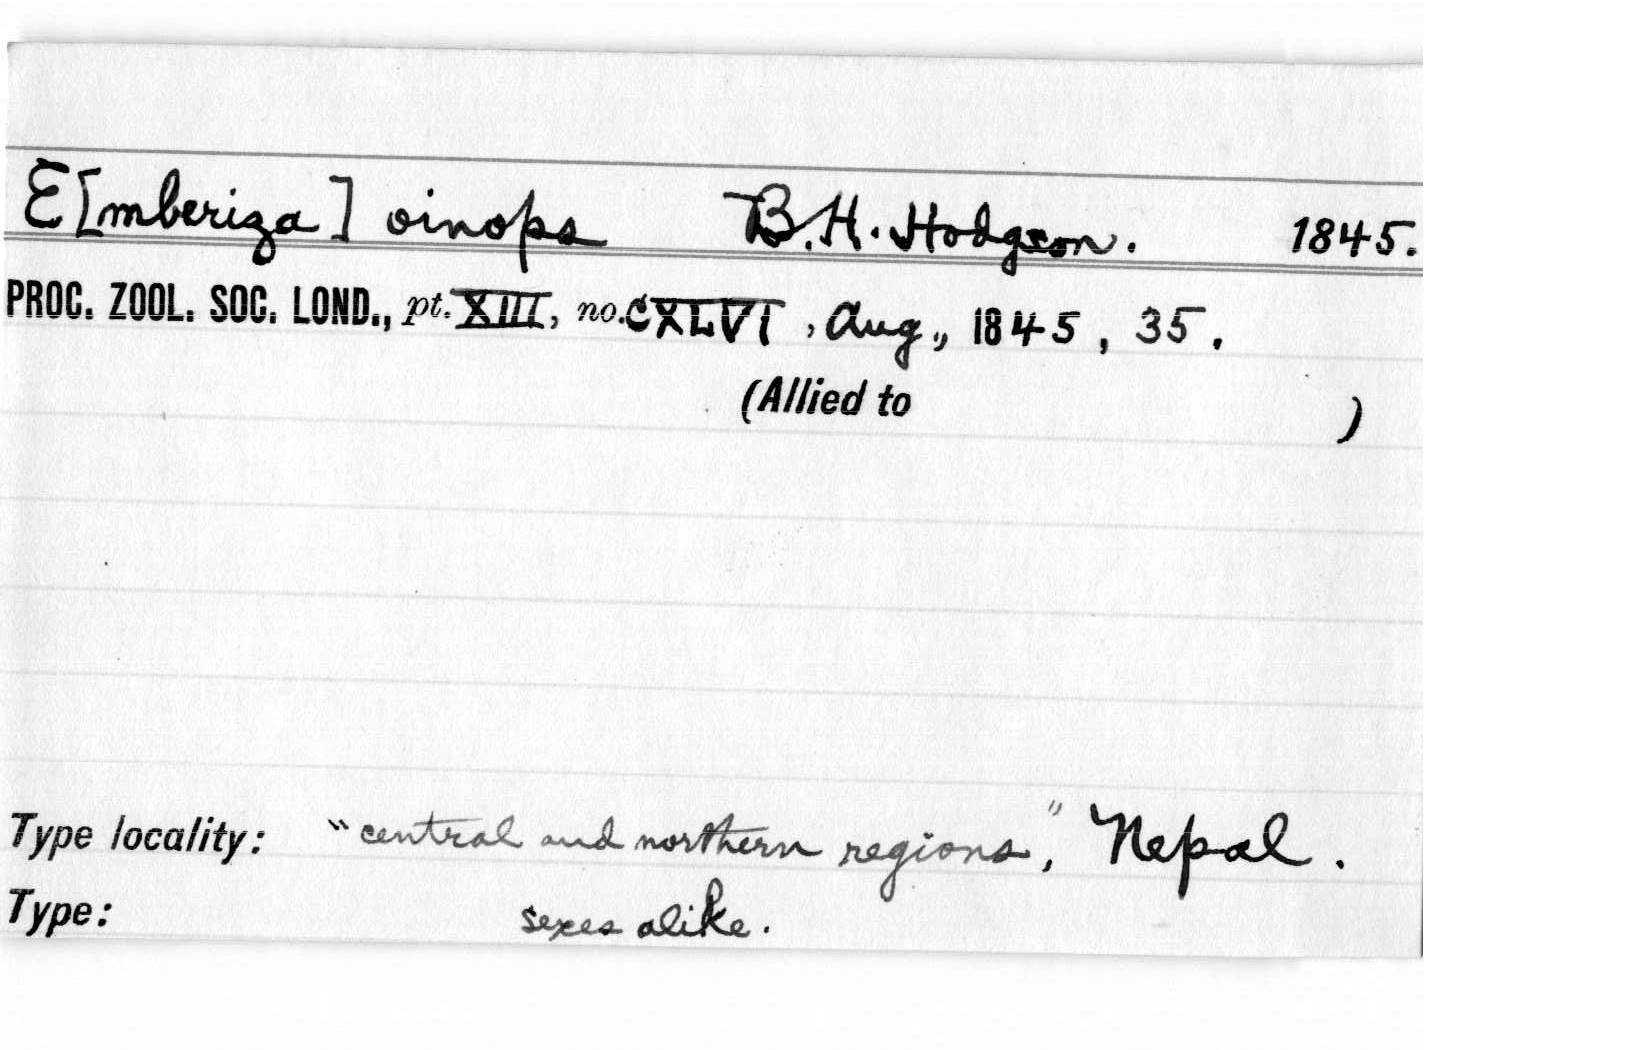 E[mberiza] oinops B.H. Hodgson. 1845.
PROC. ZOOL. SOC. LOND., pt. XIII, no. CXLVI, Aug., 1845, 35.
(Allied to )
Type locality: "central and northern regions," Nepal.
Type: sexes alike.